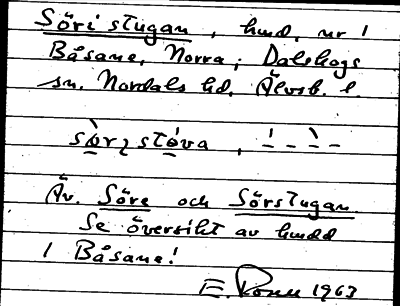 Söri stugan, hmd. nr 1
Båsane, Norra; Dalskogs
sn. Nordals hd. Älvsb. l.
sö̀rɩstó̱va, –́ – –̀ –
Äv. Söre och Sörstugan
Se översikt av hmdd
i Båsane!
E. 1963